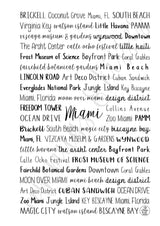 BRICKELL Coconut Grove Miami, FL SOUTH BEACH
Virginia Key watson island Little Havana PAMM
vizcaya museum & gardens wynwood Downtown
The Arsht Center calle ocho festival little haiti
Frost Museum of Science Bayfront Park Coral Gables
fairchild botanical gardens Miami Beach
LINCOLN ROAD Art Deco District Cuban Sandwich
Everglades National Park Jungle Island Key Biscayne
Miami, Florida moon over miami design district
FREEDOM TOWER
OCEAN DRIVE
Miami
Zoo Miami
PAMM
Brickell South Beach magic city biscayne bay
Miami, FL VIZCAYA MUSEUM & GARDENS WYNWOOD
little haiti the arsht center Bayfront Park
Calle Ocho Festival FROST MUSEUM OF SCIENCE
Fairchild Botanical Gardens Downtown Coral Gables
MOON OVER MIAMI miami beach design district
Art Deco District CUBAN SANDWICH OCEAN DRIVE
Zoo Miami Jungle Island KEY BISCAYNE Miami, Florida
MAGIC CITY watson island BISCAYNE BAY